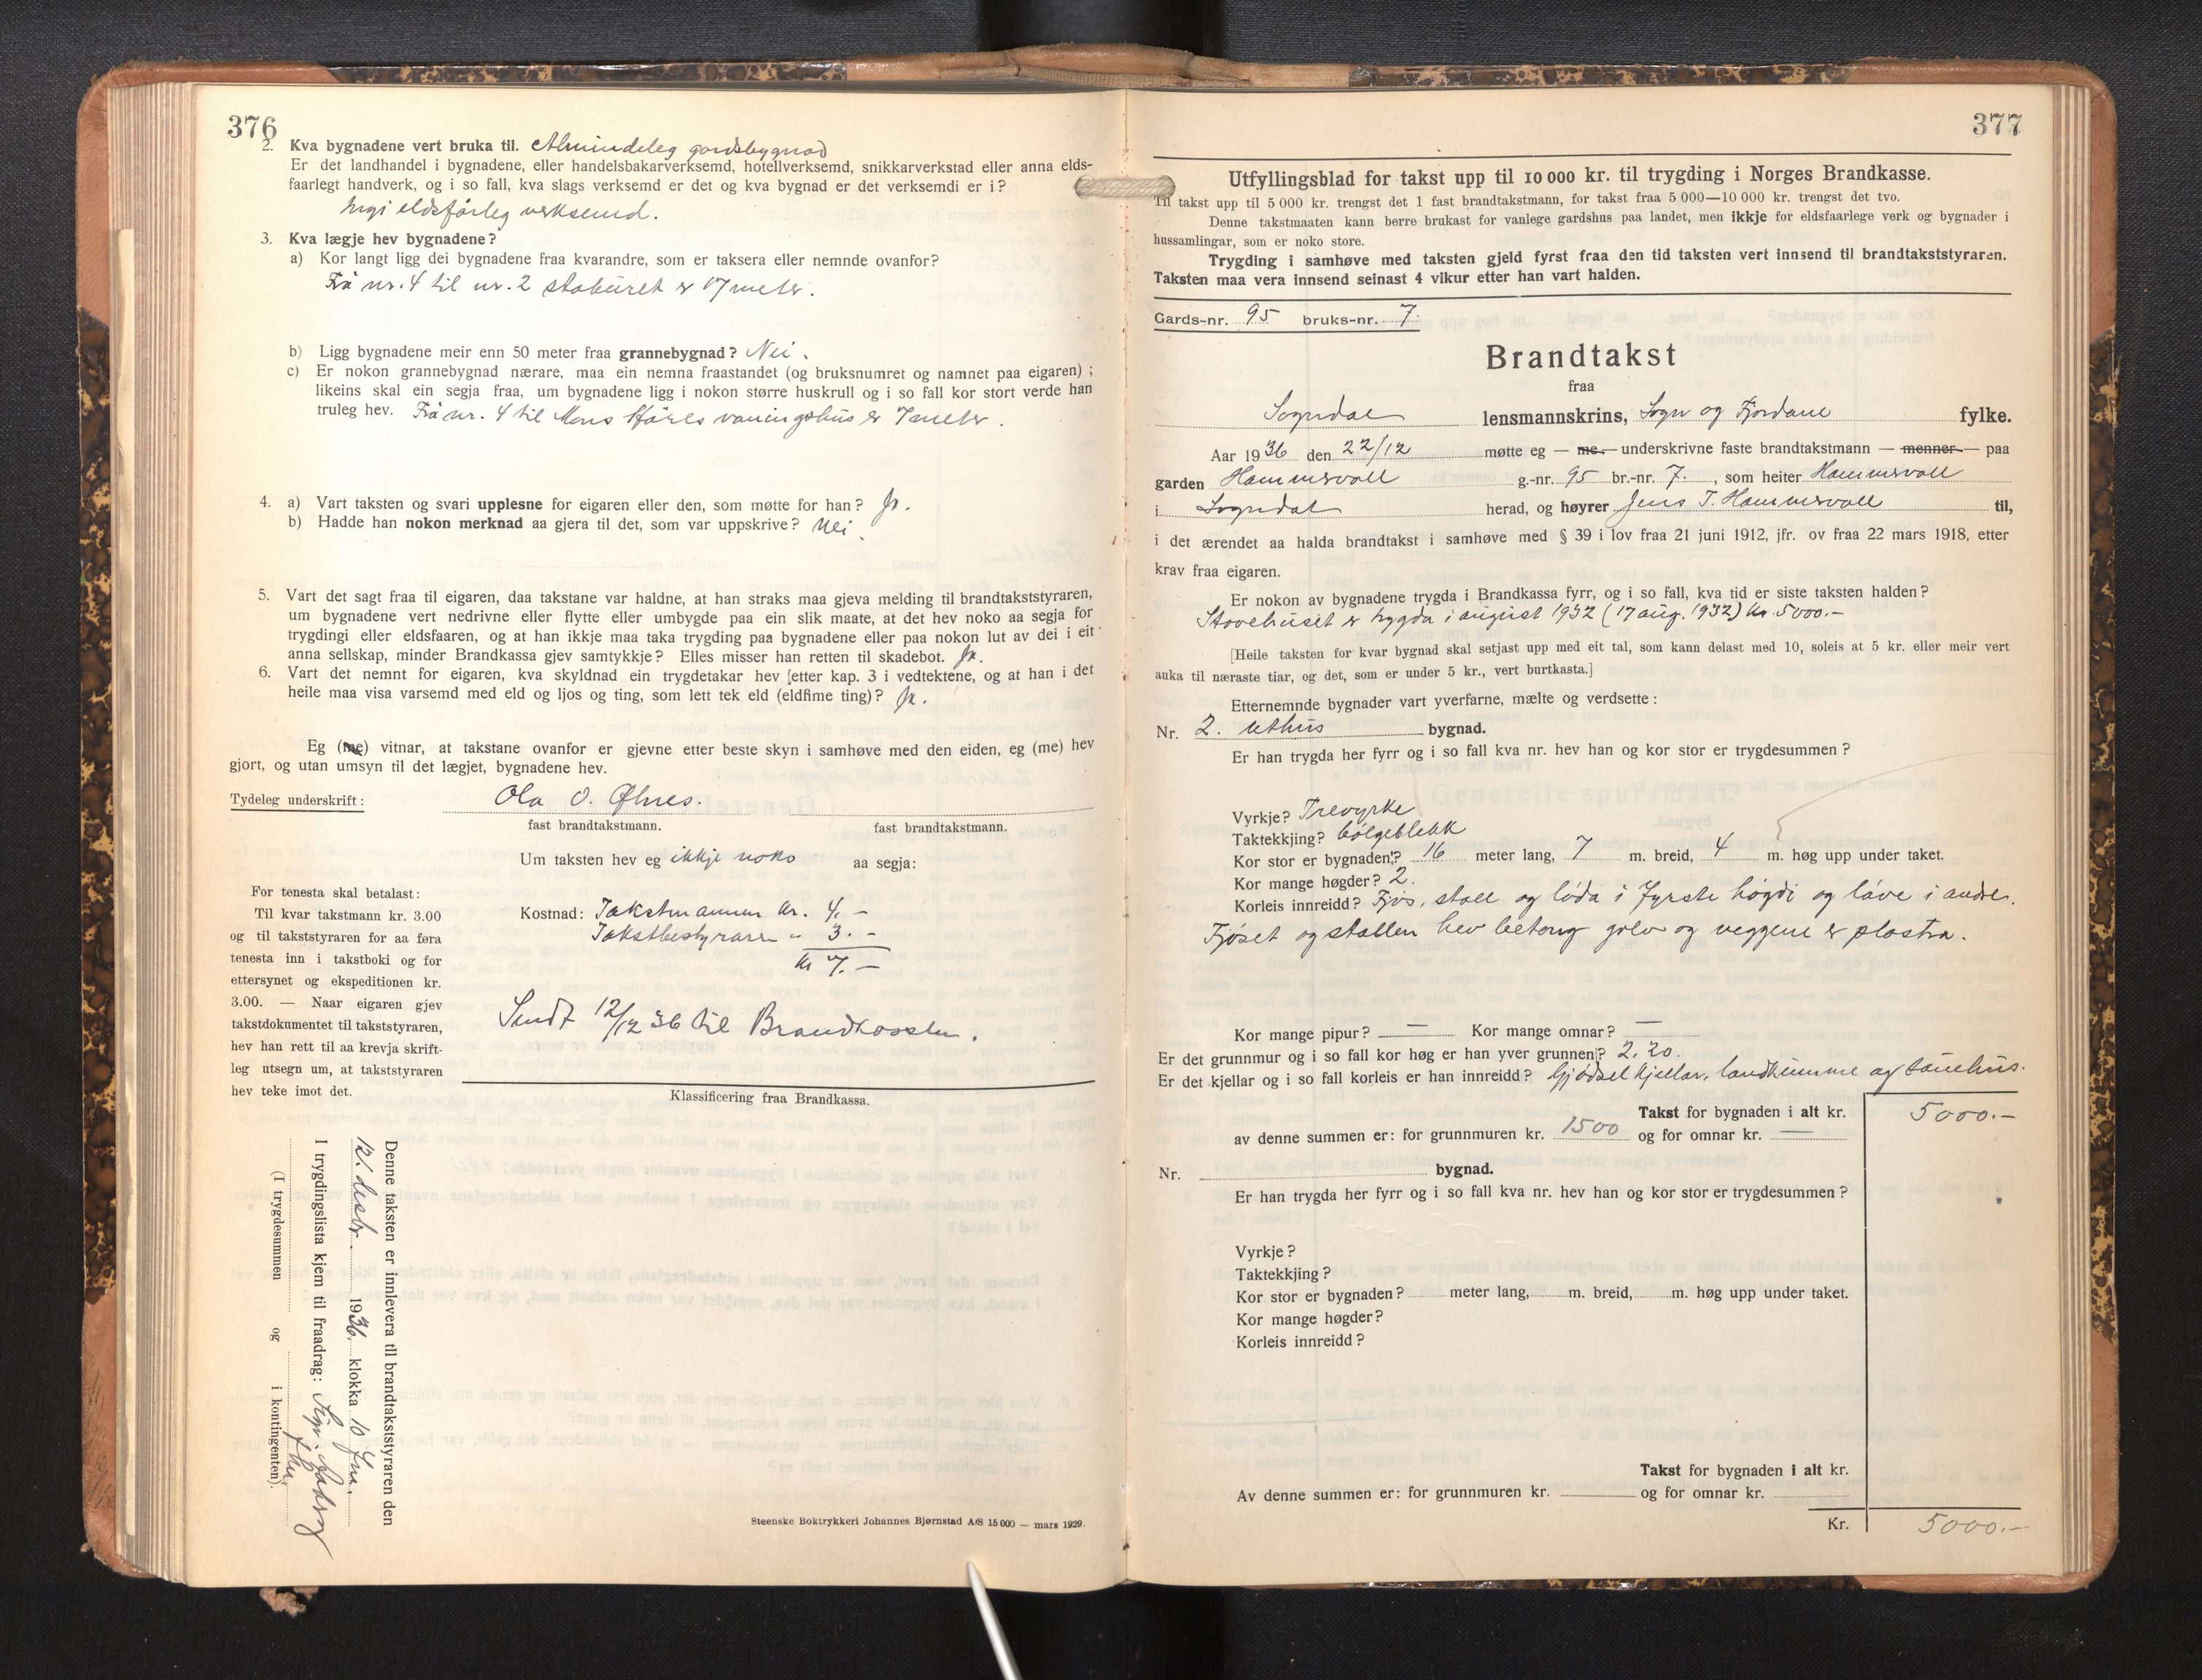 376
2. Kva bygnadene vert bruka til. Almindeleg gardsbygnad
Er det landhandel i bygnadene, eller handelsbakarverksemd, hotellverksemd, snikkarverkstad eller anna elds-
faarlegt handverk, og i so fall, kva slags verksemd er det og kva bygnad er det verksemdi er i?
Ingi eldsfårleg verksemd.
3. Kva lægje hev bygnadene?
a) Kor langt ligg dei bygnadene fraa kvarandre, som er taksera eller nemnde ovanfor?
Frå nr. 4 til nr. 2 staburet er 17 meter.
b) Ligg bygnadene meir enn 50 meter fraa grannebygnad? Nei.
c) Er nokon grannebygnad nærare, maa ein nemna fraastandet (og bruksnumret og namnet paa eigaren);
likeins skal ein segja fraa, um bygnadene ligg i nokon større huskrull og i so fall kor stort verde han
truleg hev. Frå nr. 4 til Mons våningshus er 7 meter.
4. a) Vart taksten og svari upplesne for eigaren eller den, som møtte for han? Ja.
b) Hadde han nokon merknad aa gjera til det, som var uppskrive? Nei.
5. Vart det sagt fraa til eigaren, daa takstane var haldne, at han straks maa gjeva melding til brandtakststyraren,
um bygnadene vert nedrivne eller flytte eller umbygde paa ein slik maate, at det hev noko aa segja for
trygdingi eller eldsfaaren, og at han ikkje maa taka trygding paa bygnadene eller paa nokon lut av dei i eit
anna sellskap, minder Brandkassa gjev samtykkje? Elles misser han retten til skadebot. Ja.
6. Vart det nemnt for eigaren, kva skyldnad ein trygdetakar hev etter kap. 3 i vedtektene, og at han i det
heile maa visa varsemd med eld og ljos og ting, som lett tek eld (eldfime ting)? Ja.
Eg (me) vitnar, at takstane ovanfor er gjevne etter beste skyn i samhøve med den eiden, eg (me) hev
gjort, og utan umsyn til det lægjet, bygnadene hev.
Tydeleg underskrift: Ola O. Ølnes.
fast brandtakstmann. fast brandtakstmann.
Um taksten hev eg ikkje noko aa segja:
For tenesta skal betalast:
Til kvar takstmann kr. 3.00
og til takststyraren for aa føra
tenesta inn i takstboki og for
ettersynet og ekspeditionen kr.
3.00. — Naar eigaren gjev
takstdokumentet til takststyraren,
hev han rett til aa krevja skrift-
leg utsegn um, at takststyraren
hev teke imot det.
Kostnad: Takstmannen kr. 4.-
Takstbestyraren " 3.-
kr 7.-
Sendt 12/12 36 til Brandkassen.
Klassificering fraa Brandkassa.
Denne taksten er innlevera til brandtakststyraren den
12. desbr. 1936 klokka 10 fm.
I trygdingslista kjem til fraadrag:
(I trygdesummen og i kontingenten).
Steenske Boktrykkeri Johannes Bjørnstad A/S 15 000 — mars 1929.
377
Utfyllingsblad for takst upp til 10 000 kr. til trygding i Norges Brandkasse.
Til takst upp til 5 000 kr. trengst det 1 fast brandtakstmann, for takst fraa 5 000—10 000 kr. trengst det tvo.
Denne takstmaaten kann berre brukast for vanlege gardshus paa landet, men ikkje for eldsfaarlege verk og bygnader i
hussamlingar, som er noko store.
Trygding i samhøve med taksten gjeld fyrst fraa den tid taksten vert innsend til brandtakststyraren.
Taksten maa vera innsend seinast 4 vikur etter han vart halden.
Gards-nr. 95 bruks-nr. 7.
Brandtakst
fraa
Sogndal lensmannskrins, Sogn og Fjordane fylke.
Aar 1936 den 22/12 møtte eg — me — underskrivne faste brandtakstmann — menner — paa
garden Hammersvoll g.-nr. 95 br.-nr. 7. , som heiter Hammersvoll
i Sogndal herad, og høyrer Jens T. Hammersvoll til,
i det ærendet aa halda brandtakst i samhøve med § 39 i lov fraa 21 juni 1912, jfr. ov fraa 22 mars 1918, etter
krav fraa eigaren.
Er nokon av bygnadene trygda i Brandkassa fyrr, og i so fall, kva tid er siste taksten halden?
Stovehuset er trygda i august 1932 (17 aug. 1932) kr. 5000.-
[Heile taksten for kvar bygnad skal setjast upp med eit tal, som kann delast med 10, soleis at 5 kr. eller meir vert
auka til næraste tiar, og det, som er under 5 kr., vert burtkasta.]
Etternemnde bygnader vart yverfarne, mælte og verdsette:
Nr. 2. Uthus bygnad.
Er han trygda her fyrr og i so fall kva nr. hev han og kor stor er trygdesummen?
Vyrkje? Trevyrke
Taktekkjing? bølgeblekk
Kor stor er bygnaden? 16 meter lang, 7 m. breid, 4 m. høg upp under taket.
Kor mange høgder? 2.
Korleis innreidd? Fjøs, stall og løda i fyrste høgdi og låve i andre.
Fjøset og stallen hev betong golv og veggene er plastra.
Kor mange pipur? — Kor mange omnar? —
Er det grunnmur og i so fall kor høg er han yver grunnen? 2,20.
Er det kjellar og i so fall korleis er han innreidd? Gjødselkjellar, landkumme og sauehus.
Takst for bygnaden i alt kr. 5000.-
av denne summen er: for grunnmuren kr. 1500 og for omnar kr. —
Nr. bygnad.
Er han trygda her fyrr og i so fall kva nr. hev han og kor stor er trygdesummen?
Vyrkje?
Taktekkjing?
Kor stor er bygnaden? meter lang, m. breid, m. høg upp under taket.
Kor mange høgder?
Korleis innreidd?
Takst for bygnaden i alt kr.
Av denne summen er: for grunnmuren kr. og for omnar kr.
Kr. 5000.-